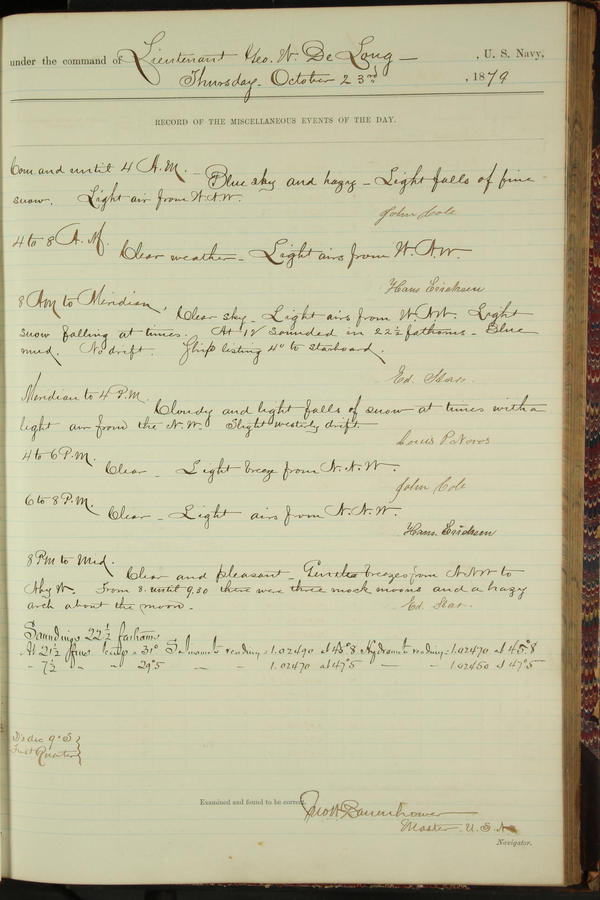 under the command of Lieutenant Geo. W. De Long — , U. S. Navy,
Thursday. October 23rd , 1879
RECORD OF THE MISCELLANEOUS EVENTS OF THE DAY.
Com. and until 4 A.M. – Blue sky and hazy – Light falls of fine
snow. Light air from
John Cole
4 to 8 A.M. Clear weather – Light airs from
Hans Ericksen
8 AM to Meridian, Clear sky – Light airs from Light
snow falling at times. At 12 sounded in 22½ fathoms – Blue
mud. No drift. Ship listing 4° to starboard.
Ed. Starr.
Meridian to 4 P.M. Cloudy and light falls of snow at times with a
light air from the N.W. Slight westerly drift
Louis P Noros
4 to 6 P.M. Clear – Light breeze from N.N.W.
John Cole
6 to 8 P.M. Clear – Light airs from N.N.W.
Hans Ericksen
8 PM to Mid. Clear and pleasant – Gentle breezes from N.N.W to
N by W. From 8 until 9.30 there were three mock moons and a hazy
arch about the moon.
Ed. Starr.
Soundings 22½ fathoms
At 21½ fms temp = 31° reading = 1.02490 at 45°8 Hydromtr reading = 1.02470 at 45°8
" 7½ " " 29°5 – – 1.02470 at 47°5 – – 1.02450 at 47°5
dec 9° S
First Quarter
Examined and found to be correct.
Danenhower
Master. U.S.N
Navigator.